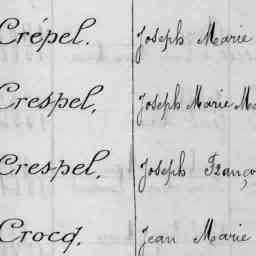 Crépel. Joseph Marie
Crespel, Joseph Marie
Crespel, Joseph
Crocq, Jean Marie